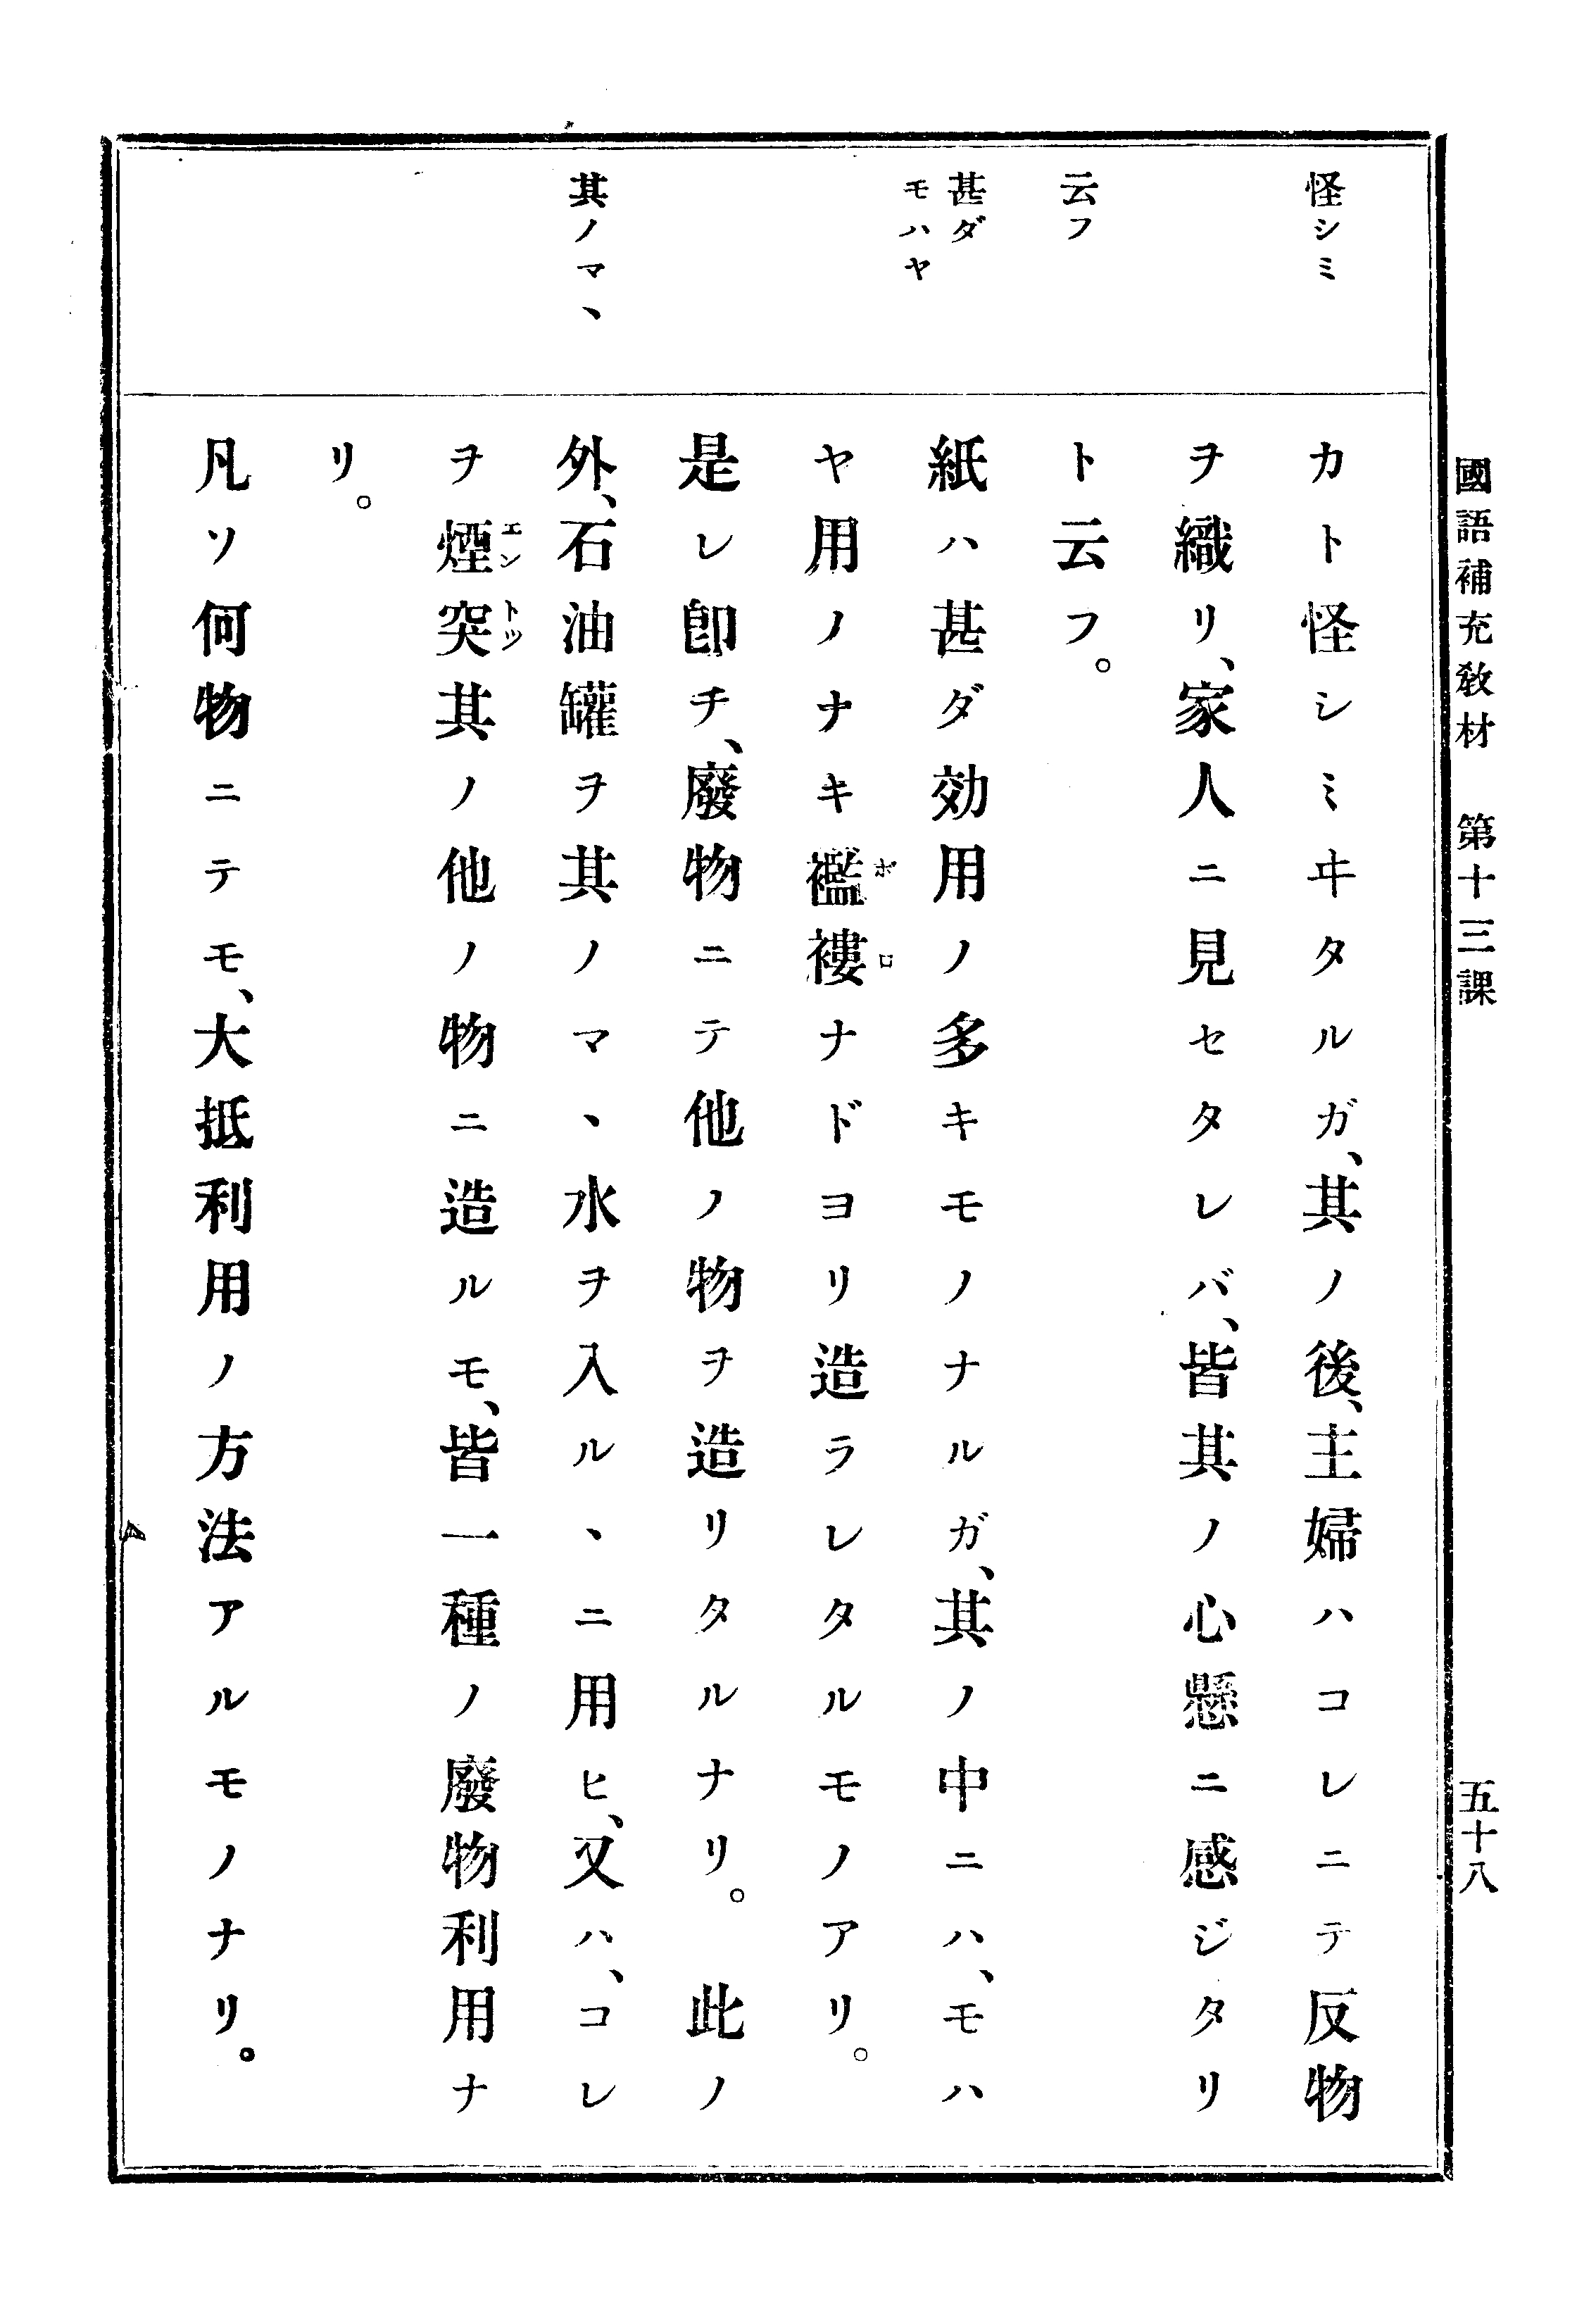 國語補充敎材　第十三課　五十八
怪シミ
云フ
甚ダ
モハヤ
其ノマヽ
カト怪シミヰタルガ、其ノ後、主婦ハコレニテ反物
ヲ織リ、家人ニ見セタレバ、皆其ノ心懸ニ感ジタリ
ト云フ。
紙ハ甚ダ効用ノ多キモノナルガ、其ノ中ニハ、モハ
ヤ用ノナキ襤褸ナドヨリ造ラレタルモノアリ。
ボロ
是レ卽チ、廢物ニテ他ノ物ヲ造リタルナリ。　此ノ
外、石油罐ヲ其ノマヽ水ヲ入ルヽニ用ヒ、又ハ、コレ
ヲ煙突其ノ他ノ物ニ造ルモ、皆一種ノ廢物利用ナ
エントツ
リ。
凡ソ何物ニテモ、大抵利用ノ方法アルモノナリ。